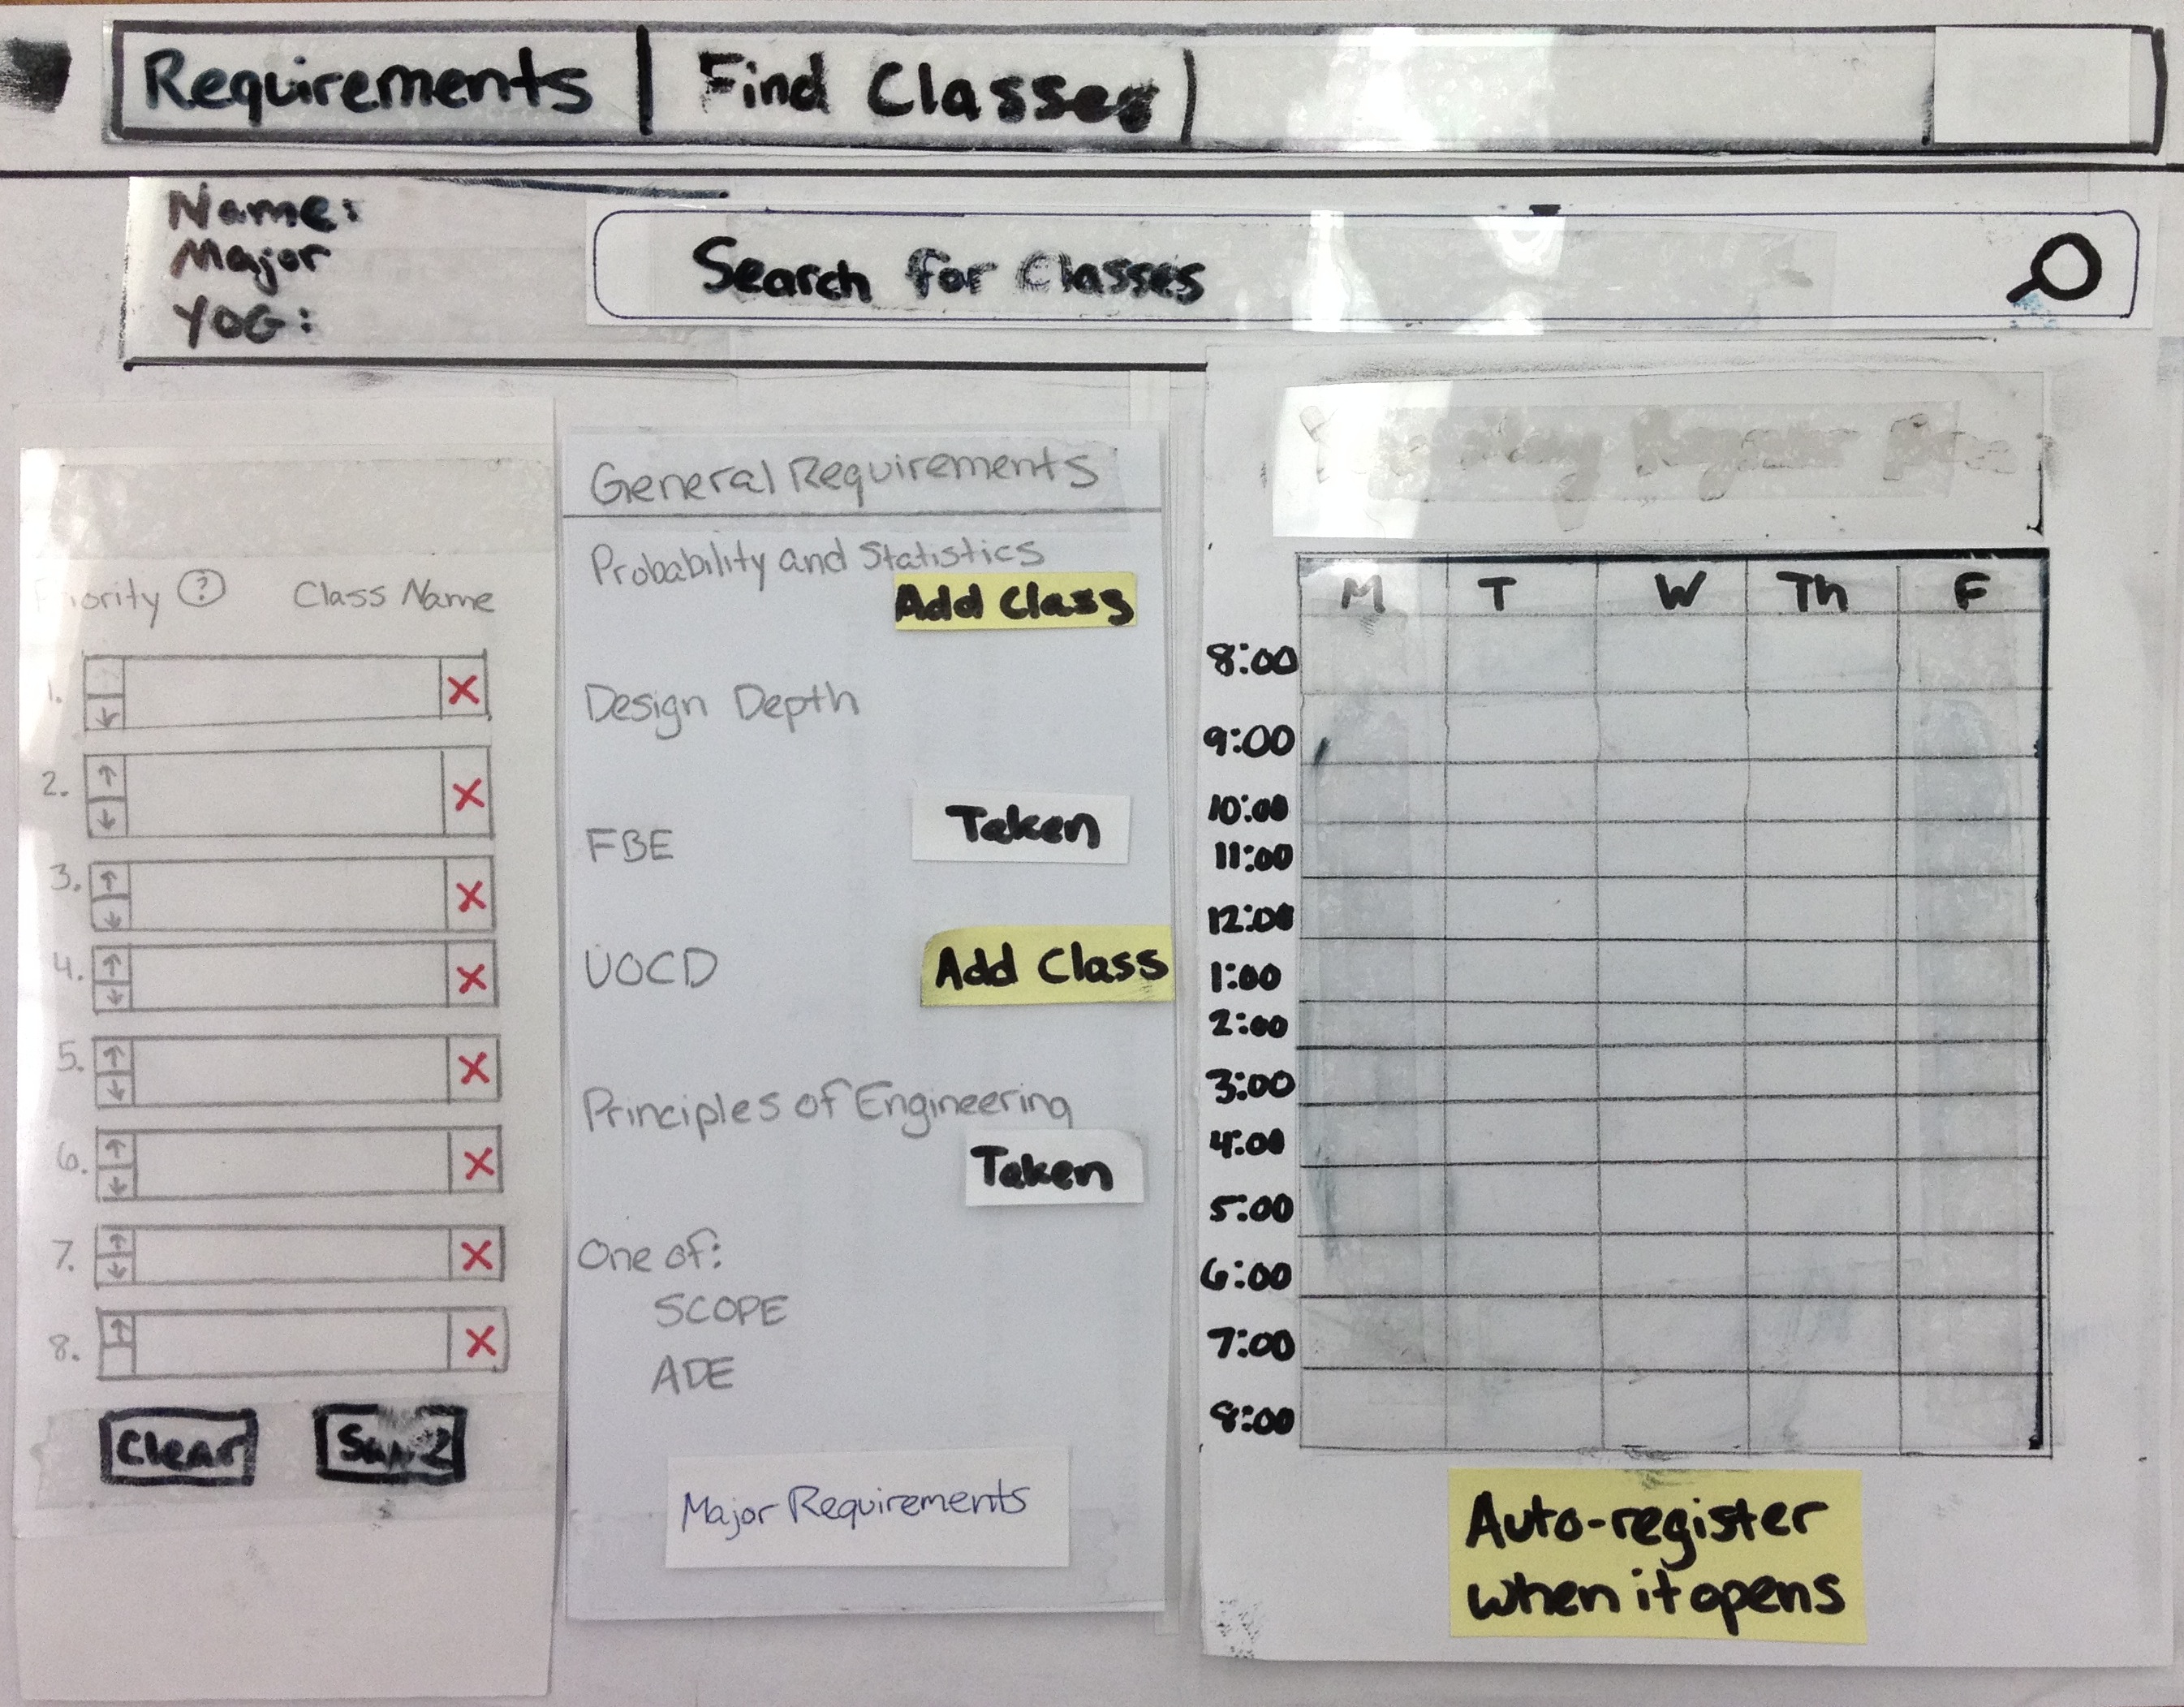 Requirements | Find Classes
Name:
Major
YOG:
Search for Classes
Priority ? Class Name
1.
2.
3.
4.
5.
6.
7.
8.
Clear
General Requirements
Probability and Statistics
Add Class
Design Depth
Taken
FBE
UOCD
Add Class
Principles of Engineering
Taken
One of:
SCOPE
ADE
Major Requirements
M T W Th F
8:00
9:00
10:00
11:00
12:00
1:00
2:00
3:00
4:00
5:00
6:00
7:00
8:00
Auto-register
when it opens